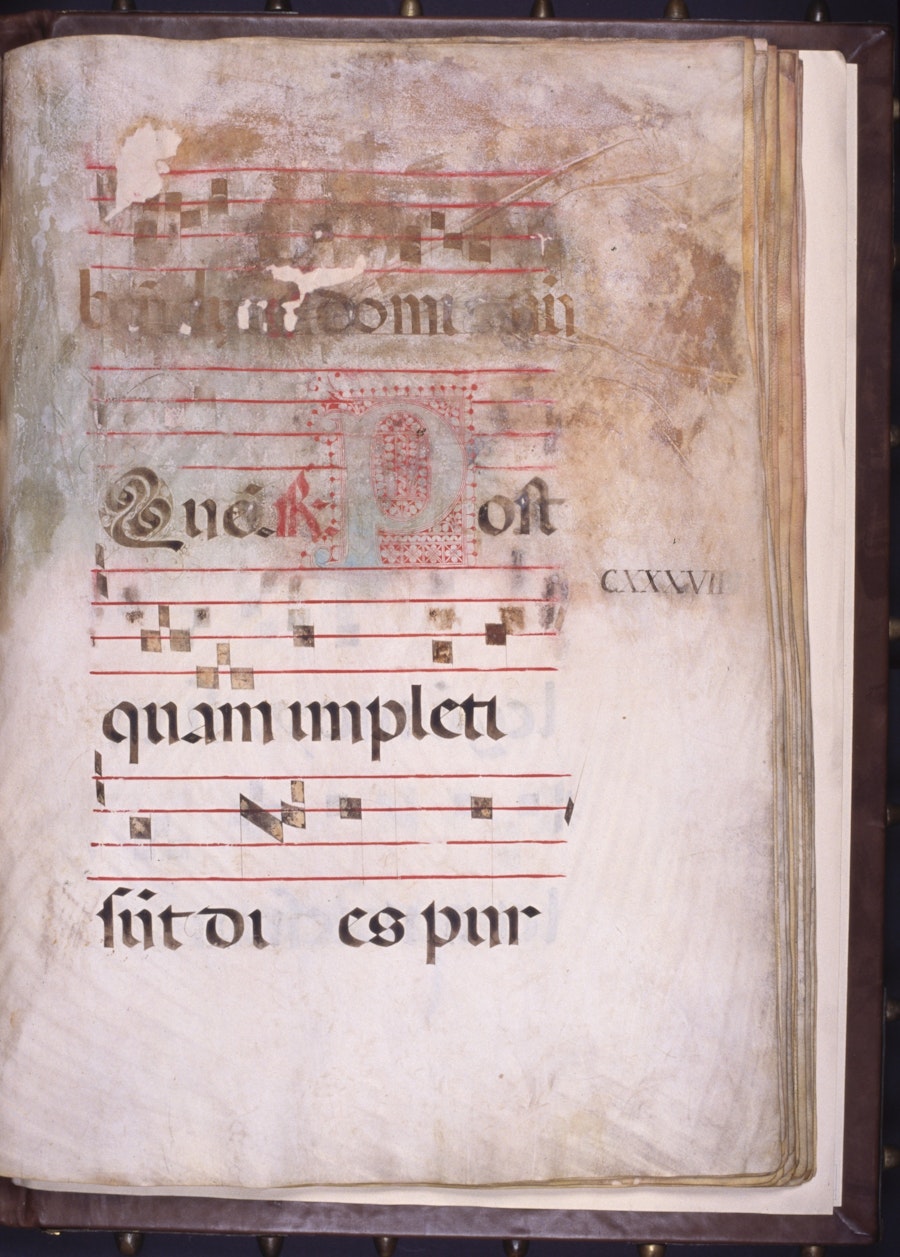 domi
Quē. R. Post
CXXXVII
quam impleti
sūt di es pur